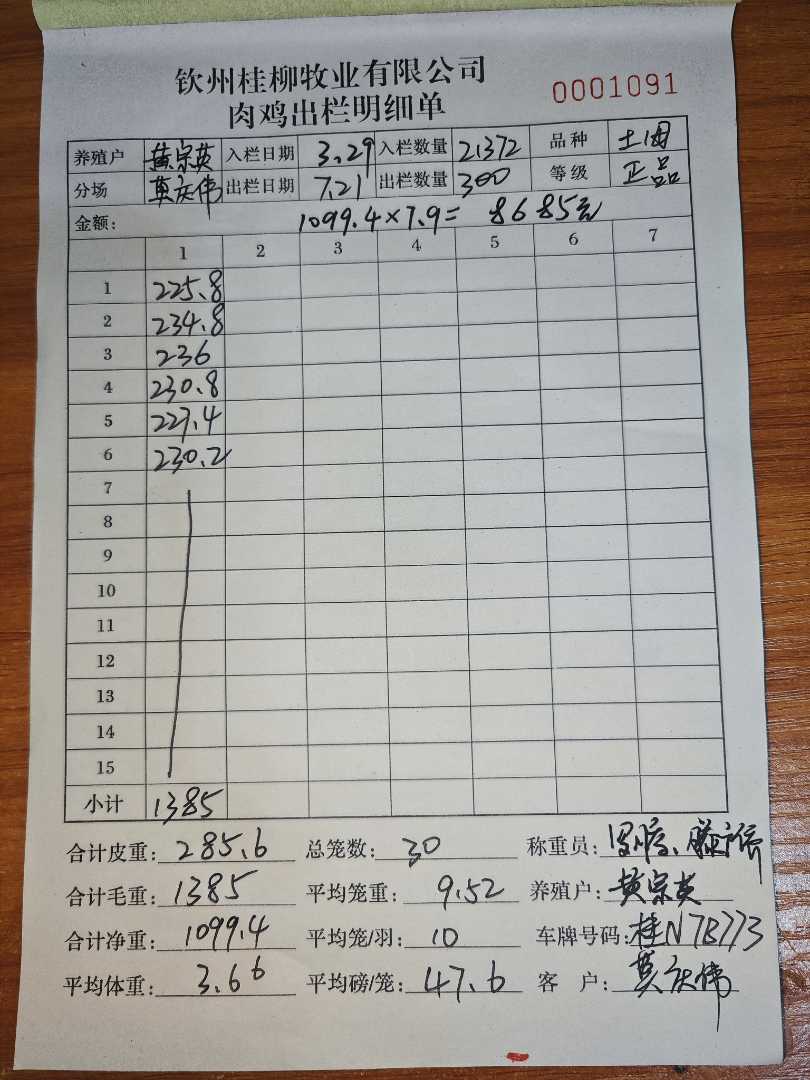 钦州桂柳牧业有限公司
肉鸡出栏明细单 0001091
养殖户 黄宗英 入栏日期 3.29 入栏数量 21372 品种 土
分场 莫庆伟 出栏日期 7.21 出栏数量 300 等级 正品
金额: 1099.4×7.9= 8685元
1 2 3 4 5 6 7
1 225.8
2 234.8
3 236
4 230.8
5 227.4
6 230.2
7
8
9
10
11
12
13
14
15
小计 1385
合计皮重: 285.6 总笼数: 30 称重员:
合计毛重: 1385 平均笼重: 9.52 养殖户: 黄宗英
合计净重: 1099.4 平均笼/羽: 10 车牌号码: 桂N7B773
平均体重: 3.66 平均磅/笼: 47.6 客 户: 莫庆伟